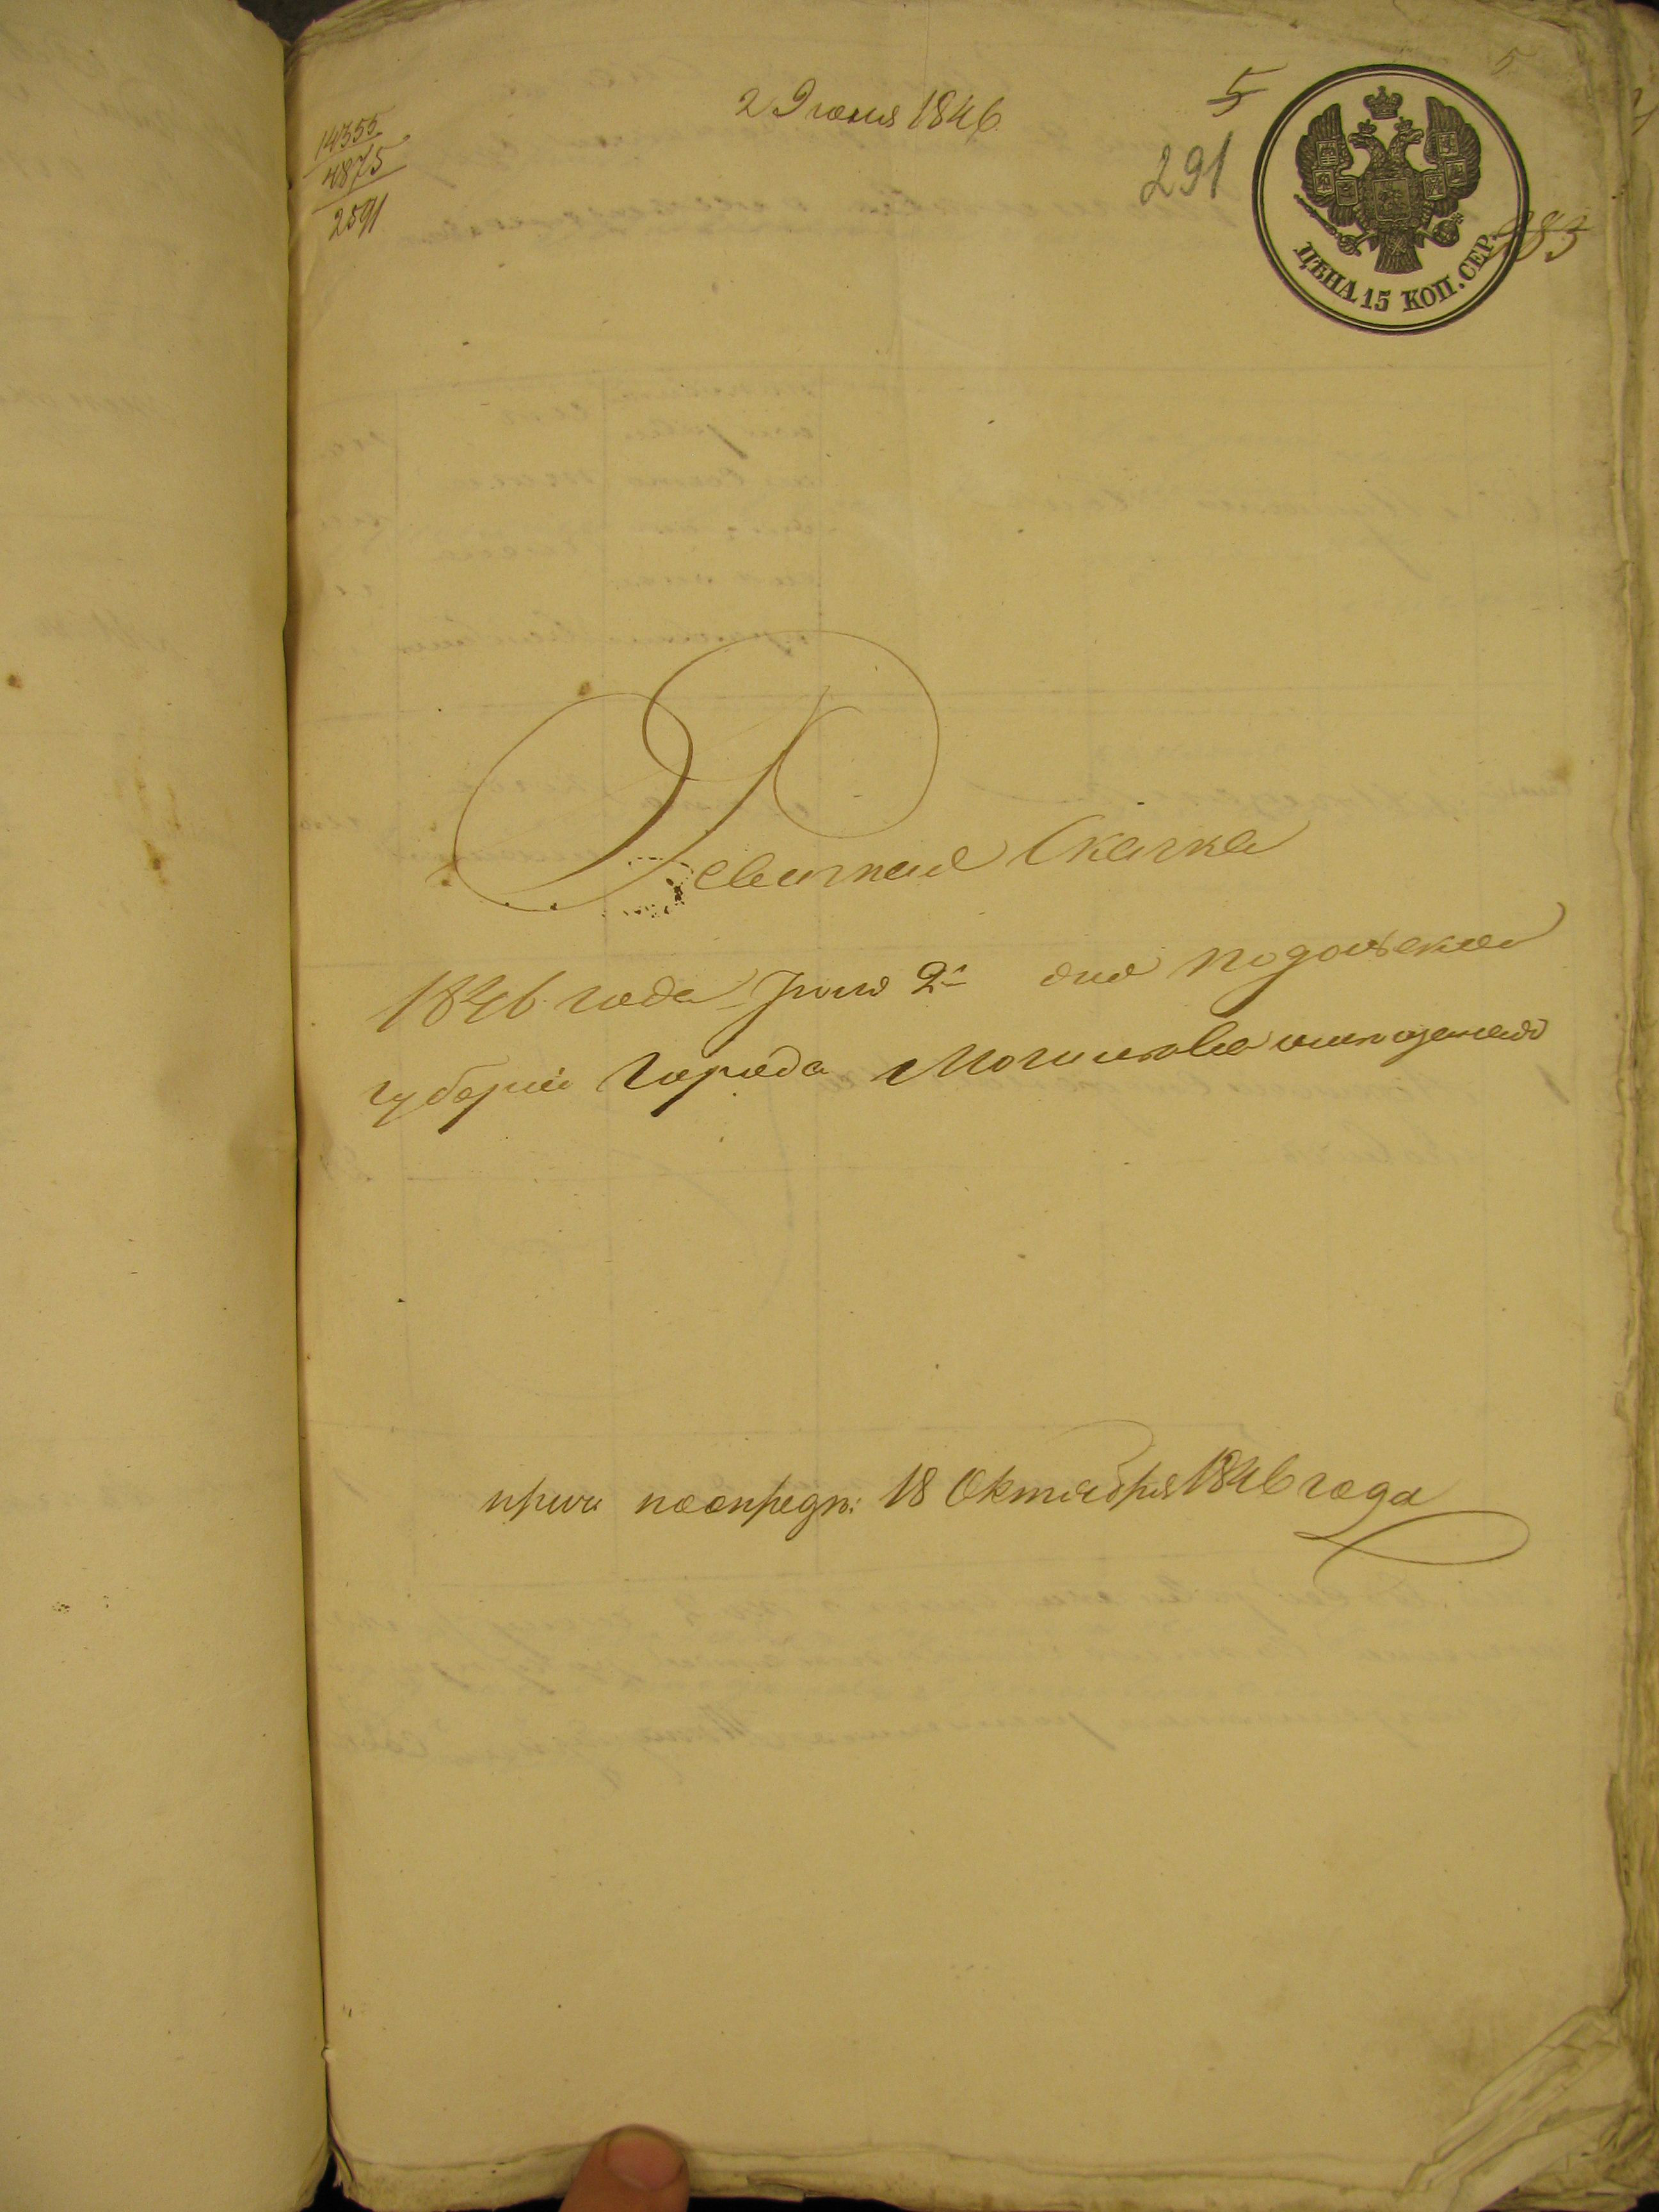 2 Июня 1846
5
291
383
14355
4875
2591
ЦѢНА 15 КОП. СЕР.
Ревизская Сказка
1846 года Июня 2го дня Подольской
губернии Города Могилева
прин поопредѣ: 18 Октября 1846 года